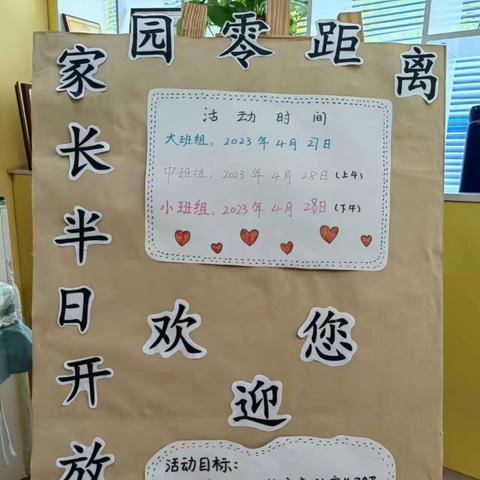 家园零距离
家长半日开放
活动时间
大班组：2023年4月27日
中班组：2023年4月28日（上午）
小班组：2023年4月28日（下午）
欢迎您
活动目标：